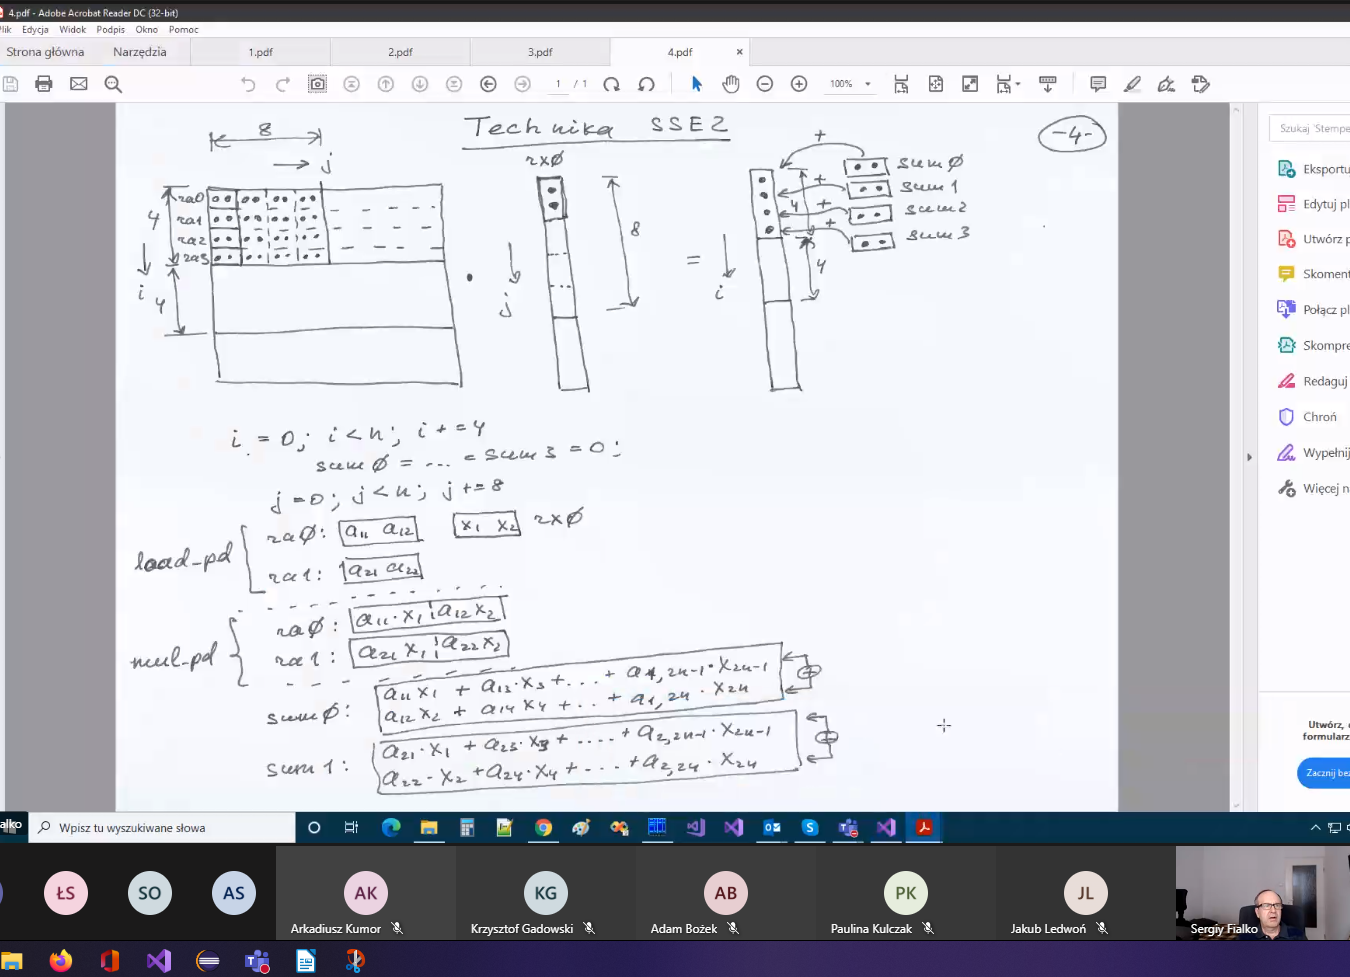 4.pdf - Adobe Acrobat Reader DC (32-bit)
Plik Edycja Widok Podpis Okno Pomoc
Strona główna Narzędzia 1.pdf 2.pdf 3.pdf 4.pdf ×
1 / 1 100%
Technika SSE2
-4-
8
j
rx0
+
sum0
+
sum1
+
sum2
+
sum3
ra0
ra1
ra2
ra3
4
i
4
·
j
8
=
i
4
4
i = 0; i < n; i += 4
sum0 = ... = sum3 = 0;
j = 0; j < n; j += 8
load_pd
ra0: a11 a12 x1 x2 rx0
ra1: a21 a22
mul_pd
ra0: a11·x1 a12 x2
ra1: a21 x1 a22 x2
sum0: a11 x1 + a13·x3 + ... + a1,2n-1·x2n-1
a12 x2 + a14 x4 + ... + a1,2n·x2n
+
sum1: a21·x1 + a23·x3 + .... + a2,2n-1·x2n-1
a22·x2 + a24·x4 + ... + a2,2n·x2n
+
Szukaj 'Stempe
Eksportu
Edytuj pl
Utwórz p
Skoment
Połącz pl
Skompre
Redaguj
Chroń
Wypełnij
Więcej na
Utwórz,
formularz
Zacznij bez
ialko
Wpisz tu wyszukiwane słowa
ŁS SO AS AK KG AB PK JL
Arkadiusz Kumor Krzysztof Gadowski Adam Bożek Paulina Kulczak Jakub Ledwoń Sergiy Fialko